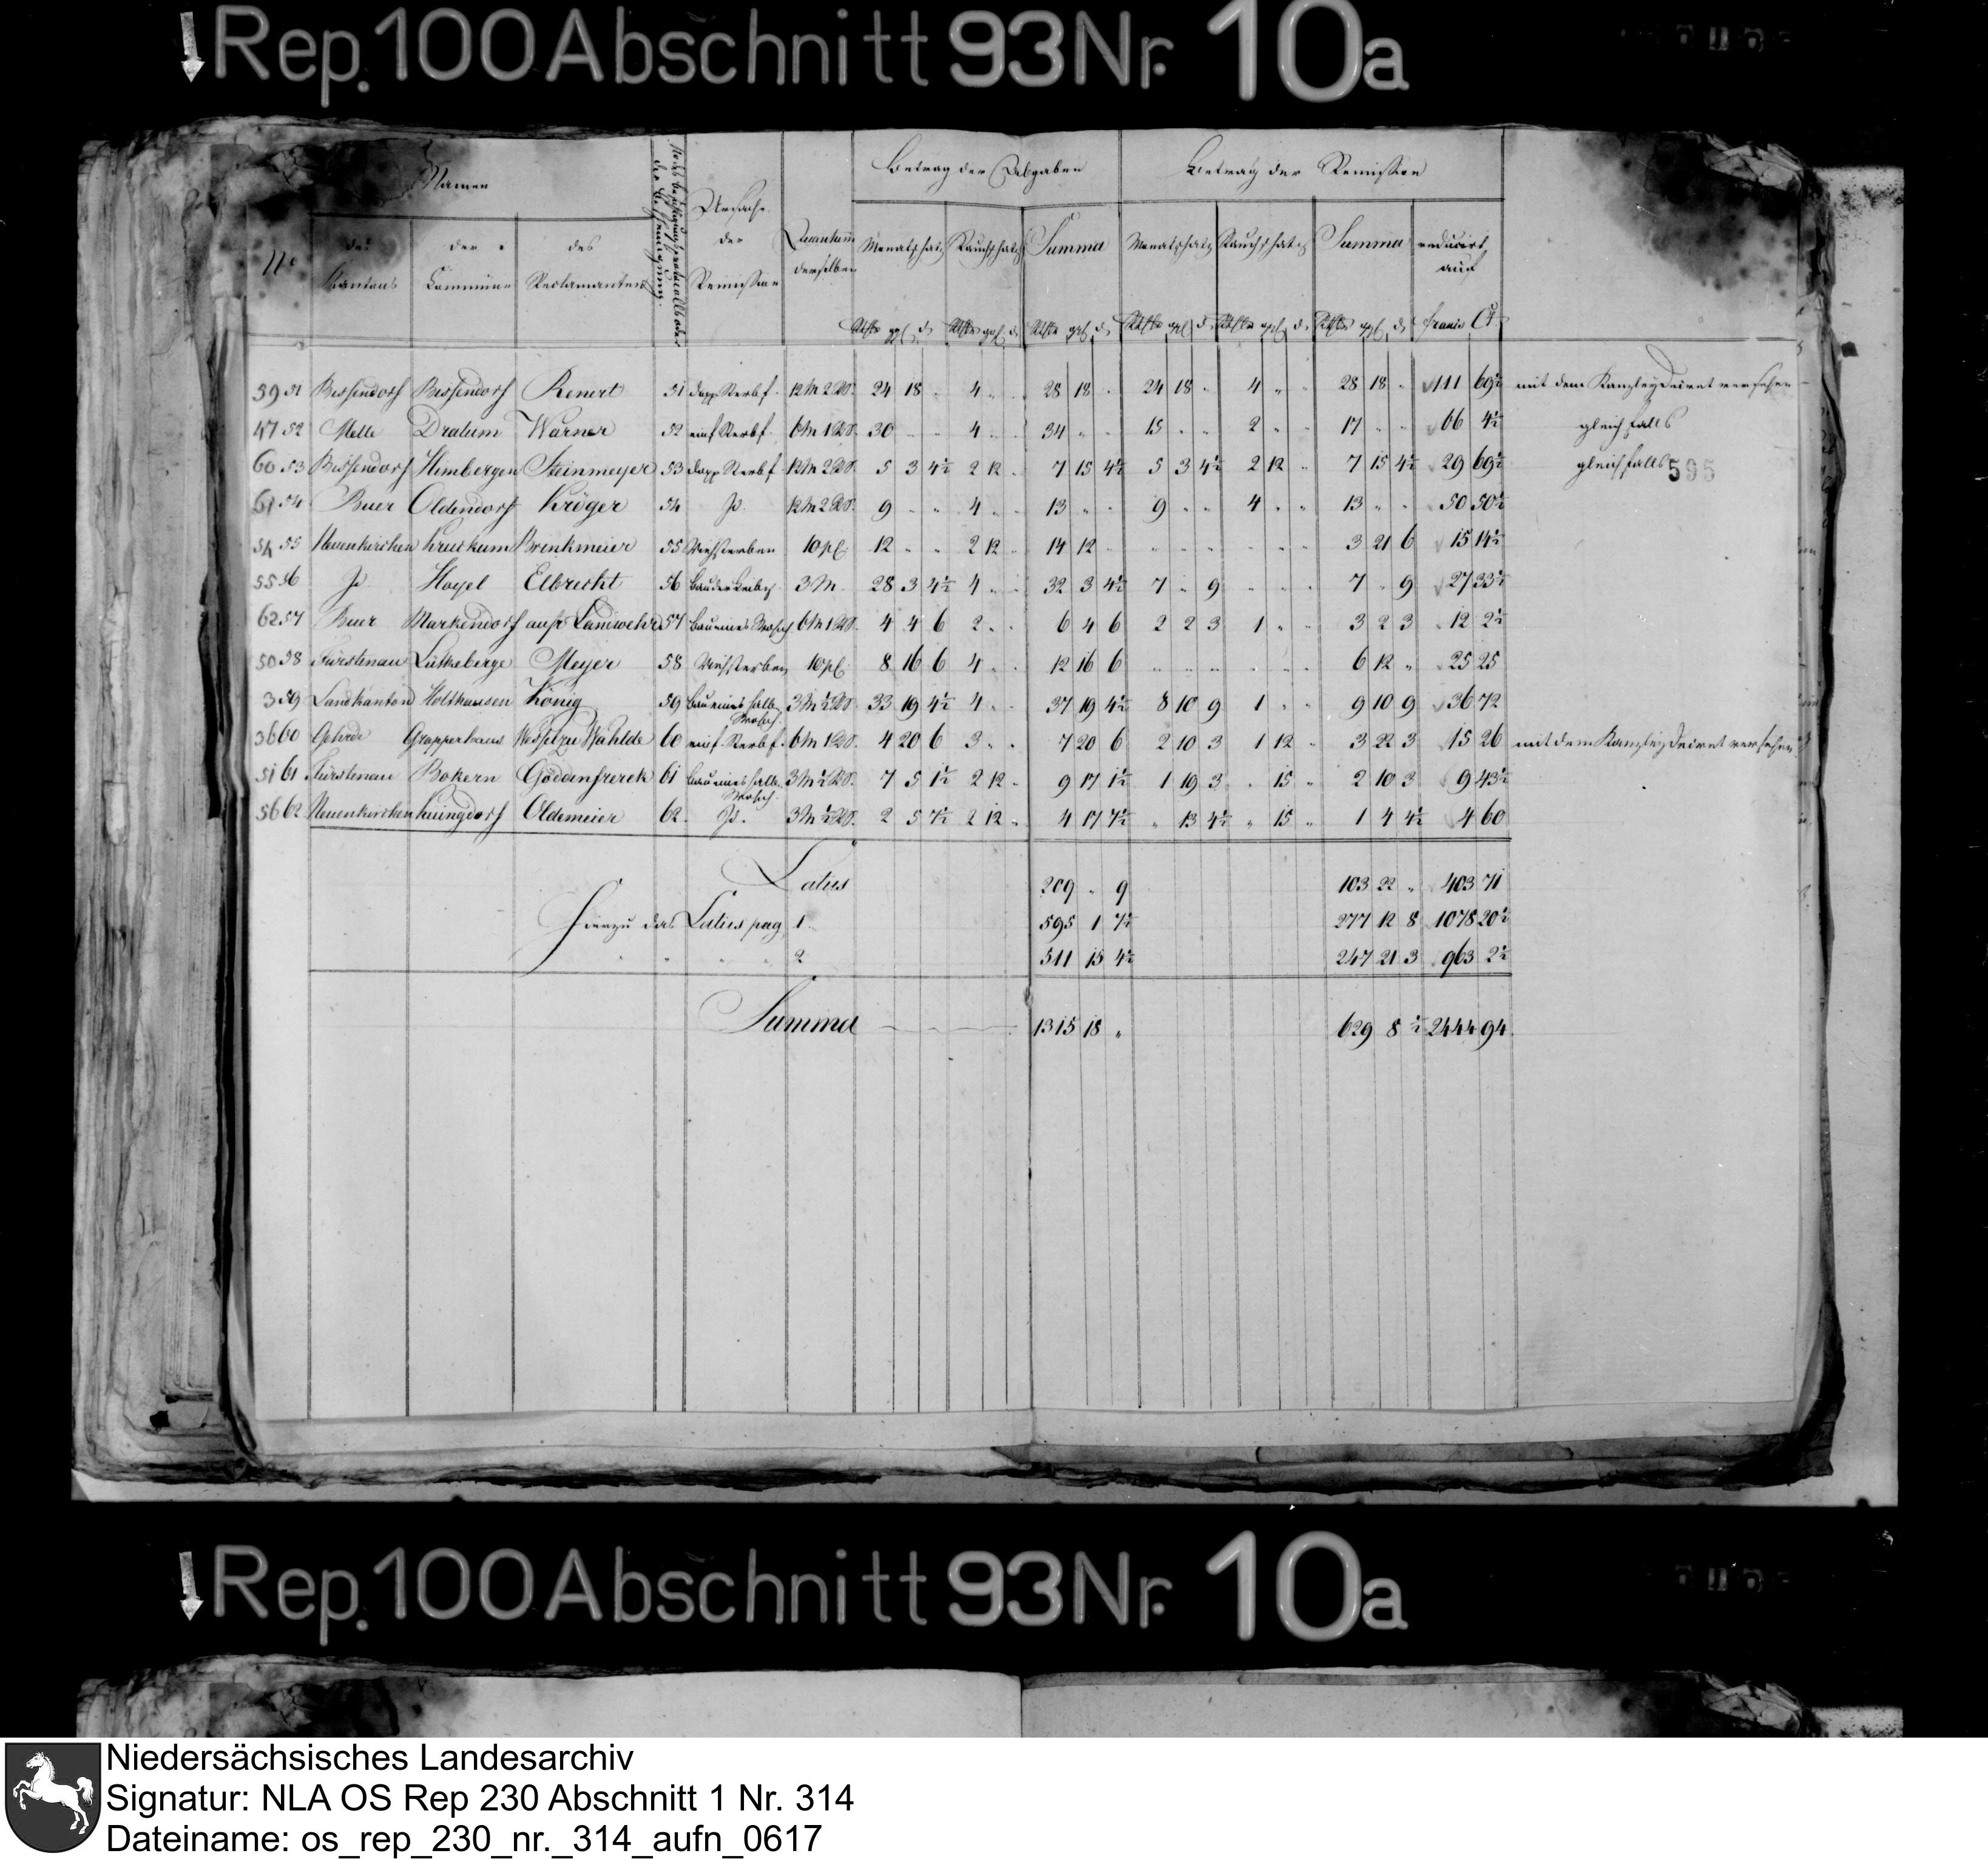 Rep. 100 Abschnitt 93 Nr. 10a
Namen Betrag der Abgaben Betrag der Remission
No des Kantons der Commune des Reclamanten Ursache der Remission Quantum derselben Monatschatz Rauchschatz Summa Monatschatz Rauchschatz Summa reducirt auf
Rthlr ggl d Rthlr ggl d Rthlr ggl d Rthlr ggl d Rthlr ggl d Rthlr ggl d Francs Ct
59 51 Bissendorf Bissendorf Renert 51 dopp Sterbf. 12 M 2 RS. 24 18 " 4 " " 28 18 " 24 18 " 4 " " 28 18 " 111 69½ mit dem Kanzley Decret versehen
47 52 Melle Dratum Warner 52 einf Sterbf. 6 M 1 RS. 30 " " 4 " " 34 " " 15 " " 2 " " 17 " " 66 4½ gleichfalls
60 53 Bissendorf Himbergen Steinmeyer 53 dopp Sterbf 12 M 2 RS. 5 3 4½ 2 12 " 7 15 4½ 5 3 4½ 2 12 " 7 15 4½ 29 69½ gleichfalls
595
61 54 Buer Oldendorf Kröger 54 Jd. 12 M 2 RS. 9 " " 4 " " 13 " " 9 " " 4 " " 13 " " 50 50½
54 55 Neuenkirchen Krukum Brinkmeier 55 Viehsterben 10 pC. 12 " " 2 12 " 14 12 " " " " " " " 3 21 6 15 14½
55 56 Jd. Hoyel Elbrecht 56 Bau der Leibz. 3 M. 28 3 4½ 4 " " 32 3 4½ 7 " 9 " " " 7 " 9 27 33½
62 57 Buer Markendorf aufr Landwehr 57 Bau eines Wohnh 6 M 1 RS. 4 4 6 2 " " 6 4 6 2 2 3 1 " " 3 2 3 12 2½
50 58 Fürstenau Lütkeberge Meyer 58 Viehsterben 10 pC. 8 16 6 4 " " 12 16 6 " " " " " " 6 12 " 25 25
3 59 Landkanton Holthausen König 59 Bau eines halb. Wohnh. 3 M ½ RS. 33 19 4½ 4 " " 37 19 4½ 8 10 9 1 " " 9 10 9 36 72
36 60 Gehrde Grapperhaus Wessel zu Wahlde 60 einf. Sterbf. 6 M 1 RS. 4 20 6 3 " " 7 20 6 2 10 3 1 12 " 3 22 3 15 26 mit dem Kanzley Decret versehen
51 61 Fürstenau Bokern Göddenfrerck 61 Bau eines halb. Wohnh. 3 M ½ RS. 7 5 1½ 2 12 " 9 17 1½ 1 19 3 " 15 " 2 10 3 9 43½
56 62 Neuenkirchen Küingdorf Oldemeier 62. Jd. 3 M ½ RS. 2 5 7½ 2 12 " 4 17 7½ " 13 4½ " 15 " 1 4 4½ 4 60
Latus 209 " 9 103 22 " 403 71
Hierzu das Latus pag 1. 595 1 7½ 277 12 8 1078 20½
" " " " 2 511 15 4½ 247 21 3 963 2½
Summa 1315 18 " 629 8 ½ 2444 94
Rep. 100 Abschnitt 93 Nr. 10a
Niedersächsisches Landesarchiv
Signatur: NLA OS Rep 230 Abschnitt 1 Nr. 314
Dateiname: os_rep_230_nr._314_aufn_0617